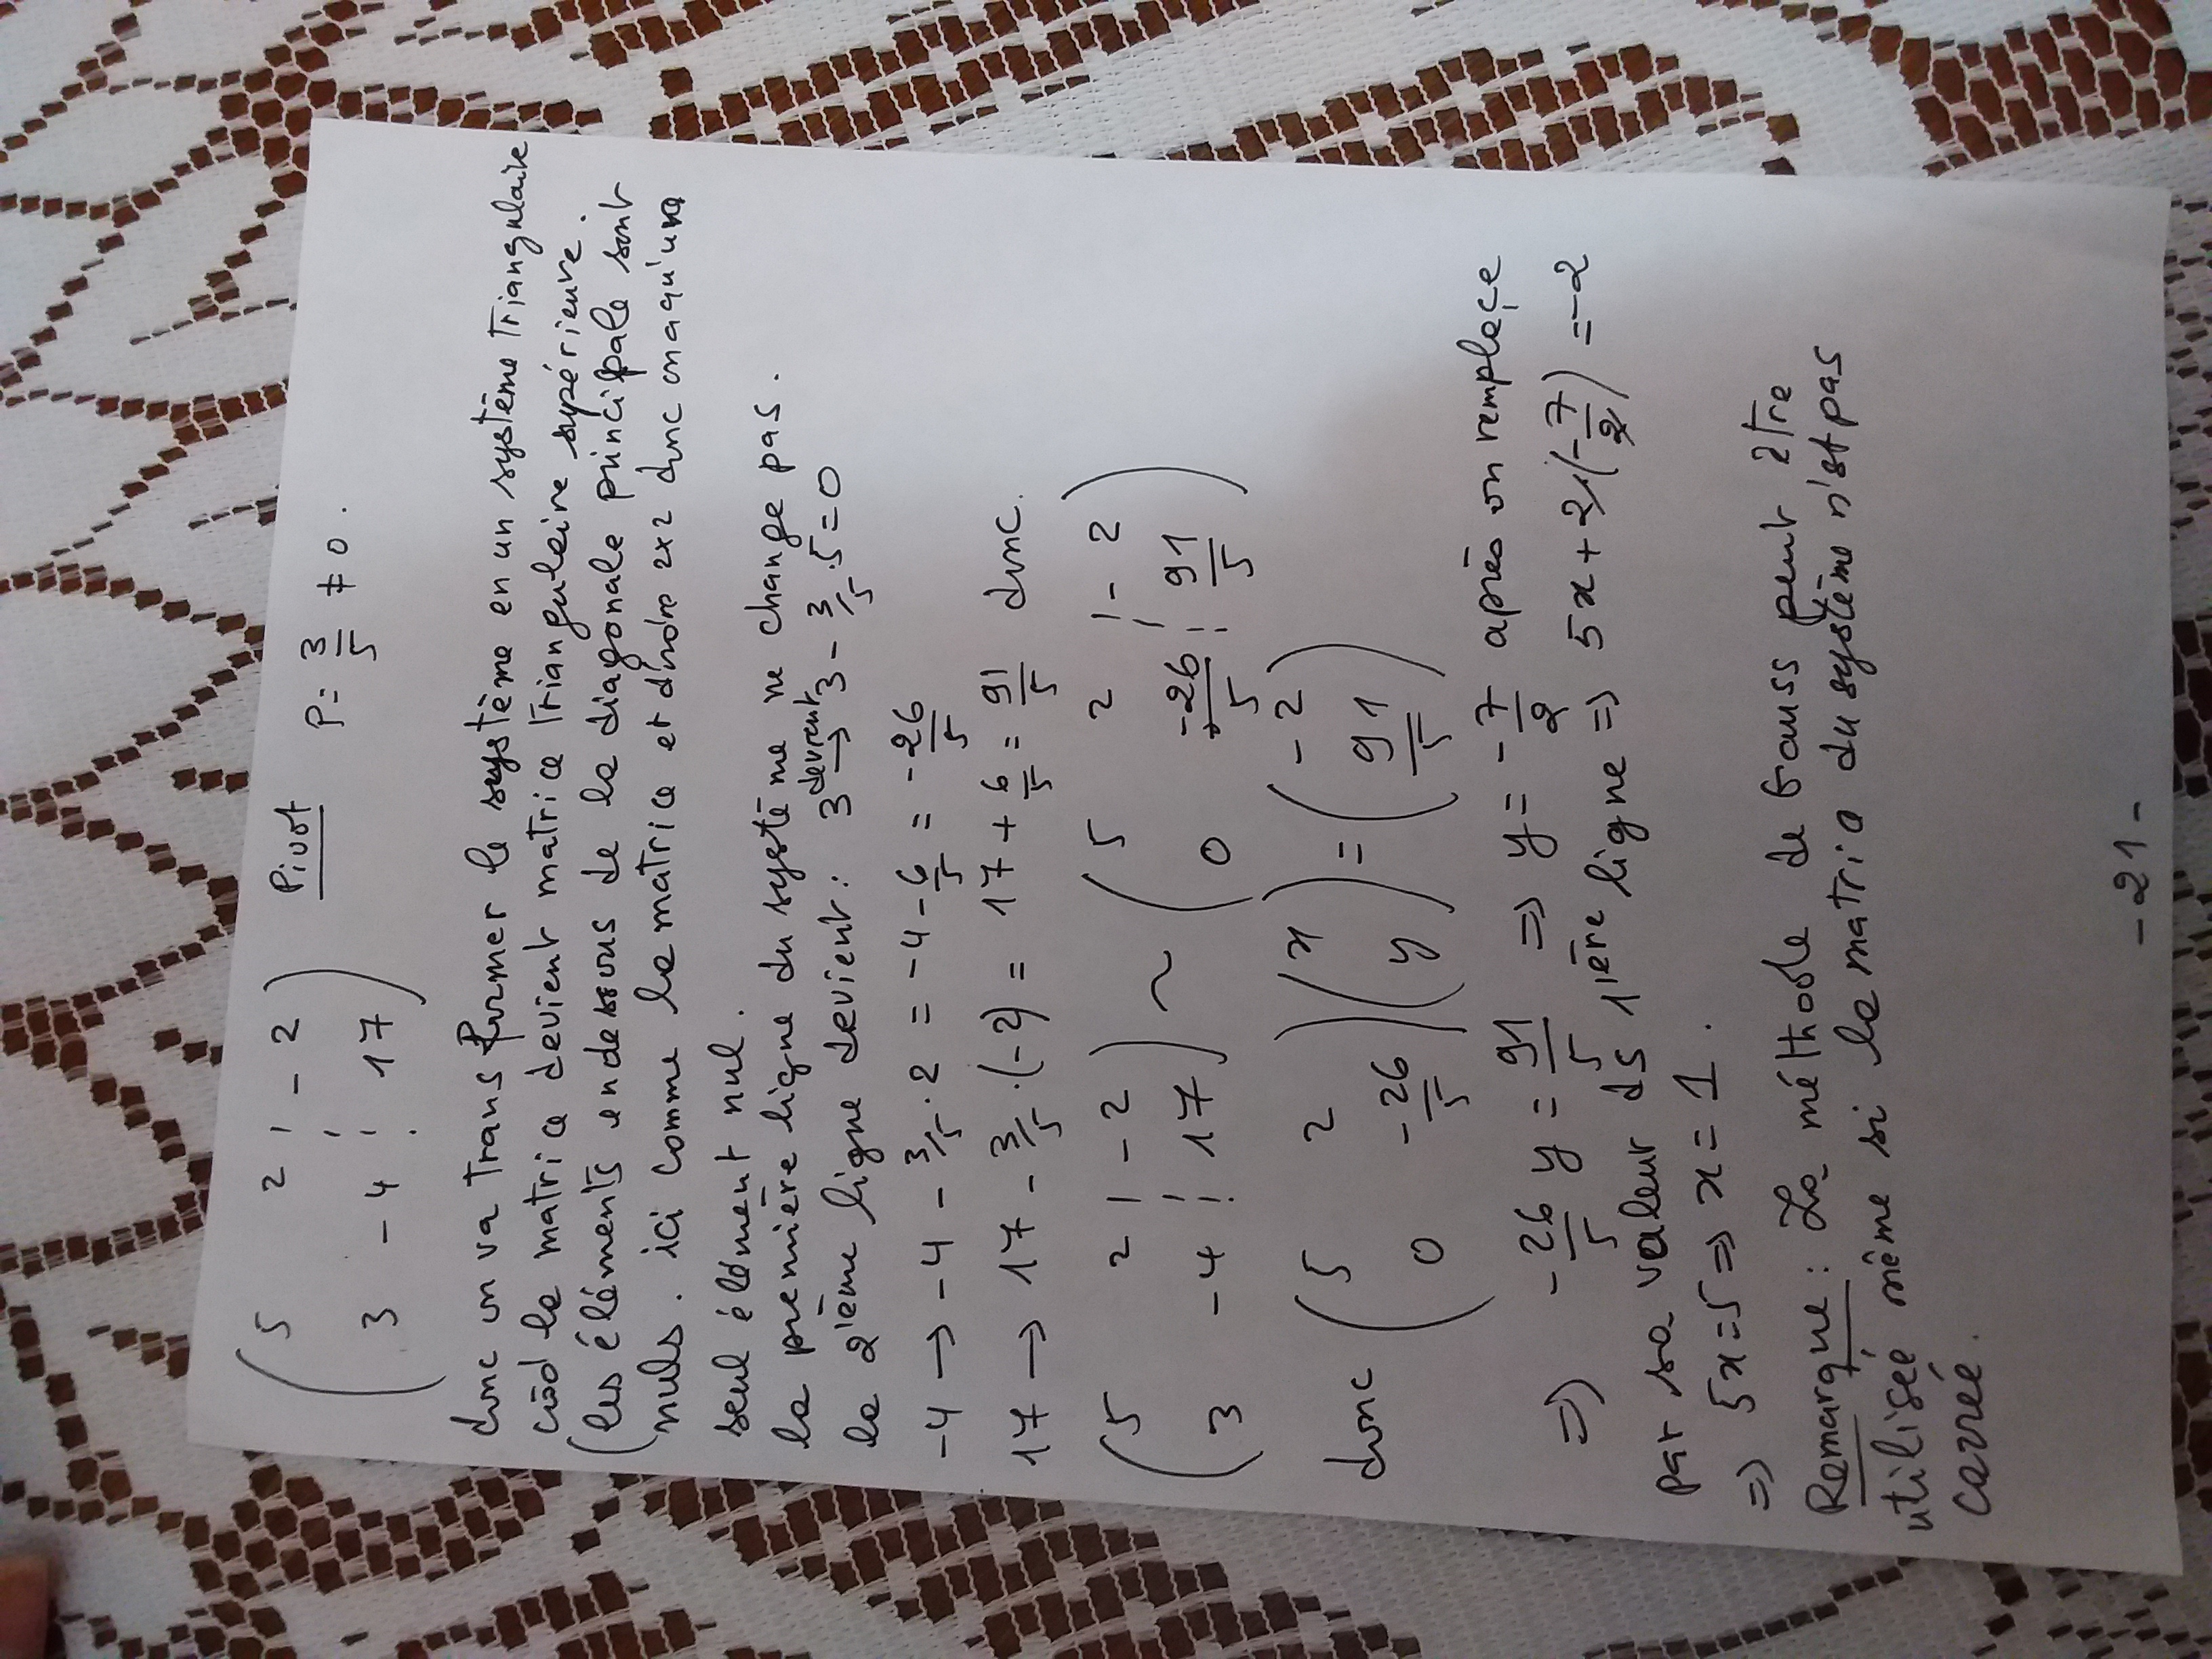 ( 5 2 ¦ -2 ) Pivot P = 3/5 ≠ 0.
( 3 -4 ¦ 17 )
donc on va transformer le système en un système triangulaire
càd la matrice devient matrice triangulaire supérieure.
(les éléments endessous de la diagonale principale sont
nuls. ici comme la matrice et d'ordre 2x2 donc on a qu'un
seul élément nul.
la première ligne du système ne change pas.
la 2ième ligne devient : 3 devient→ 3 - 3/5 . 5 = 0
-4 → -4 - 3/5 . 2 = -4 - 6/5 = -26/5
17 → 17 - 3/5 . (-2) = 17 + 6/5 = 91/5 donc.
( 5 2 ¦ -2 ) ~ ( 5 2 ¦ -2 )
( 3 -4 ¦ 17 ) ( 0 -26/5 ¦ 91/5 )
donc ( 5 2 ) ( x ) = ( -2 )
( 0 -26/5 ) ( y ) ( 91/5 )
=> -26/5 y = 91/5 => y = -7/2 après on remplace
par sa valeur ds 1ière ligne => 5x + 2.(-7/2) = -2
=> 5x = 5 => x = 1.
Remarque : La méthode de Gauss peut être
utilisée même si la matrice du système n'est pas
carrée.
- 21 -